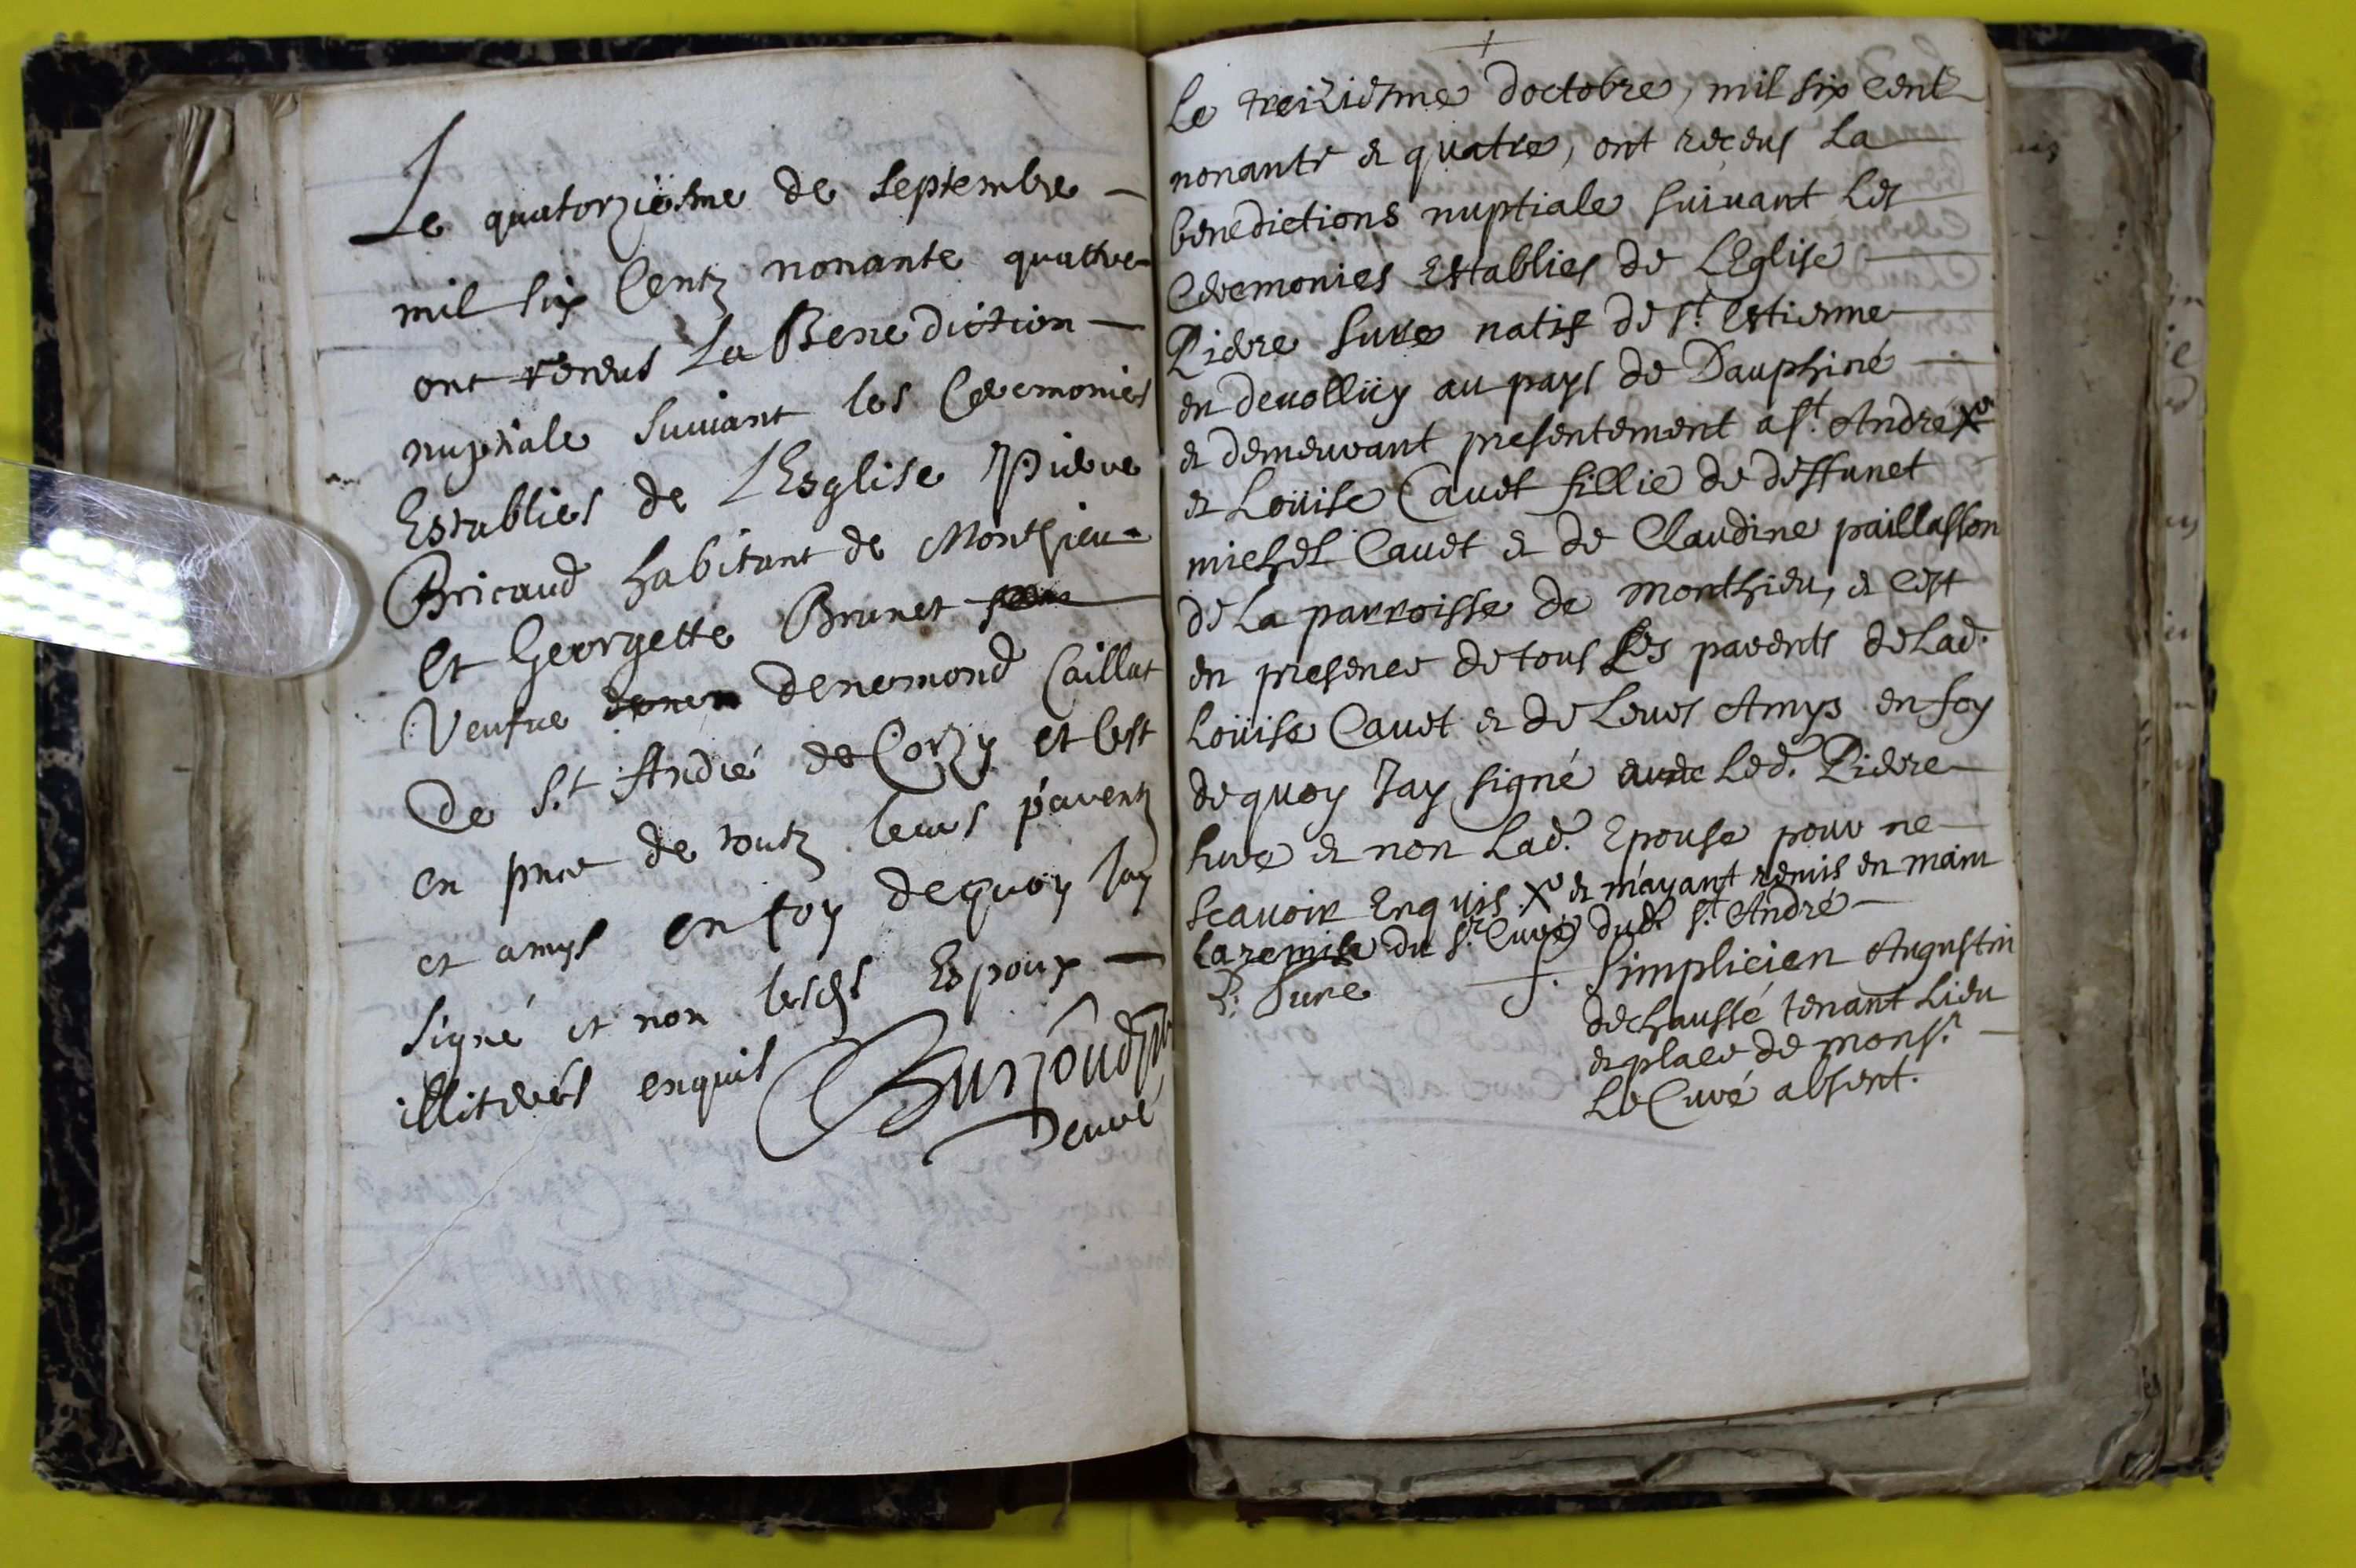 Le quatorziesme de septembre
mil six Centz nonante quattre
ont receus La Benediction
nuptiale suivant les Ceremonies
Establies de L'Esglise Pierre
Bricaud habitant de Monthieu
et Georgette Brunet
Veufve denemond Caillat
de St André de Corzy et Cest
en pnce de toutz leurs parentz
et amys en foy dequoy Jay
signé et non lesds Espoux
illiterés enquis
curé
+
Le treiziesme doctobre, mil six Cent
nonante & quatre, ont reçeus La
benedictions nuptiale suivant Les
Ceremonies Establies de LEglise
Pierre Sure natif de st Estienne
en devolluy au pays de Dauphiné
& demeurant presentement a st. André X
& Loüise Cavet fillie de deffunct
michel Cavet & de Claudine paillasson
de La parroisse de Monthieu, & Cest
en presence de tous Les parents de Lad.
Loüise Cavet & de Leurs Amys en foy
de quoy Jay signé avec Led. Pierre
Sure & non Lad. Epouse pour ne
scavoir Enquis. X & m'ayant remis en main
La remise du sr. Curé dudt st. André
P. Sure f. Simplicien Augustin
dechaussé tenant Lieu
& place de monsr.
Le Curé absent.